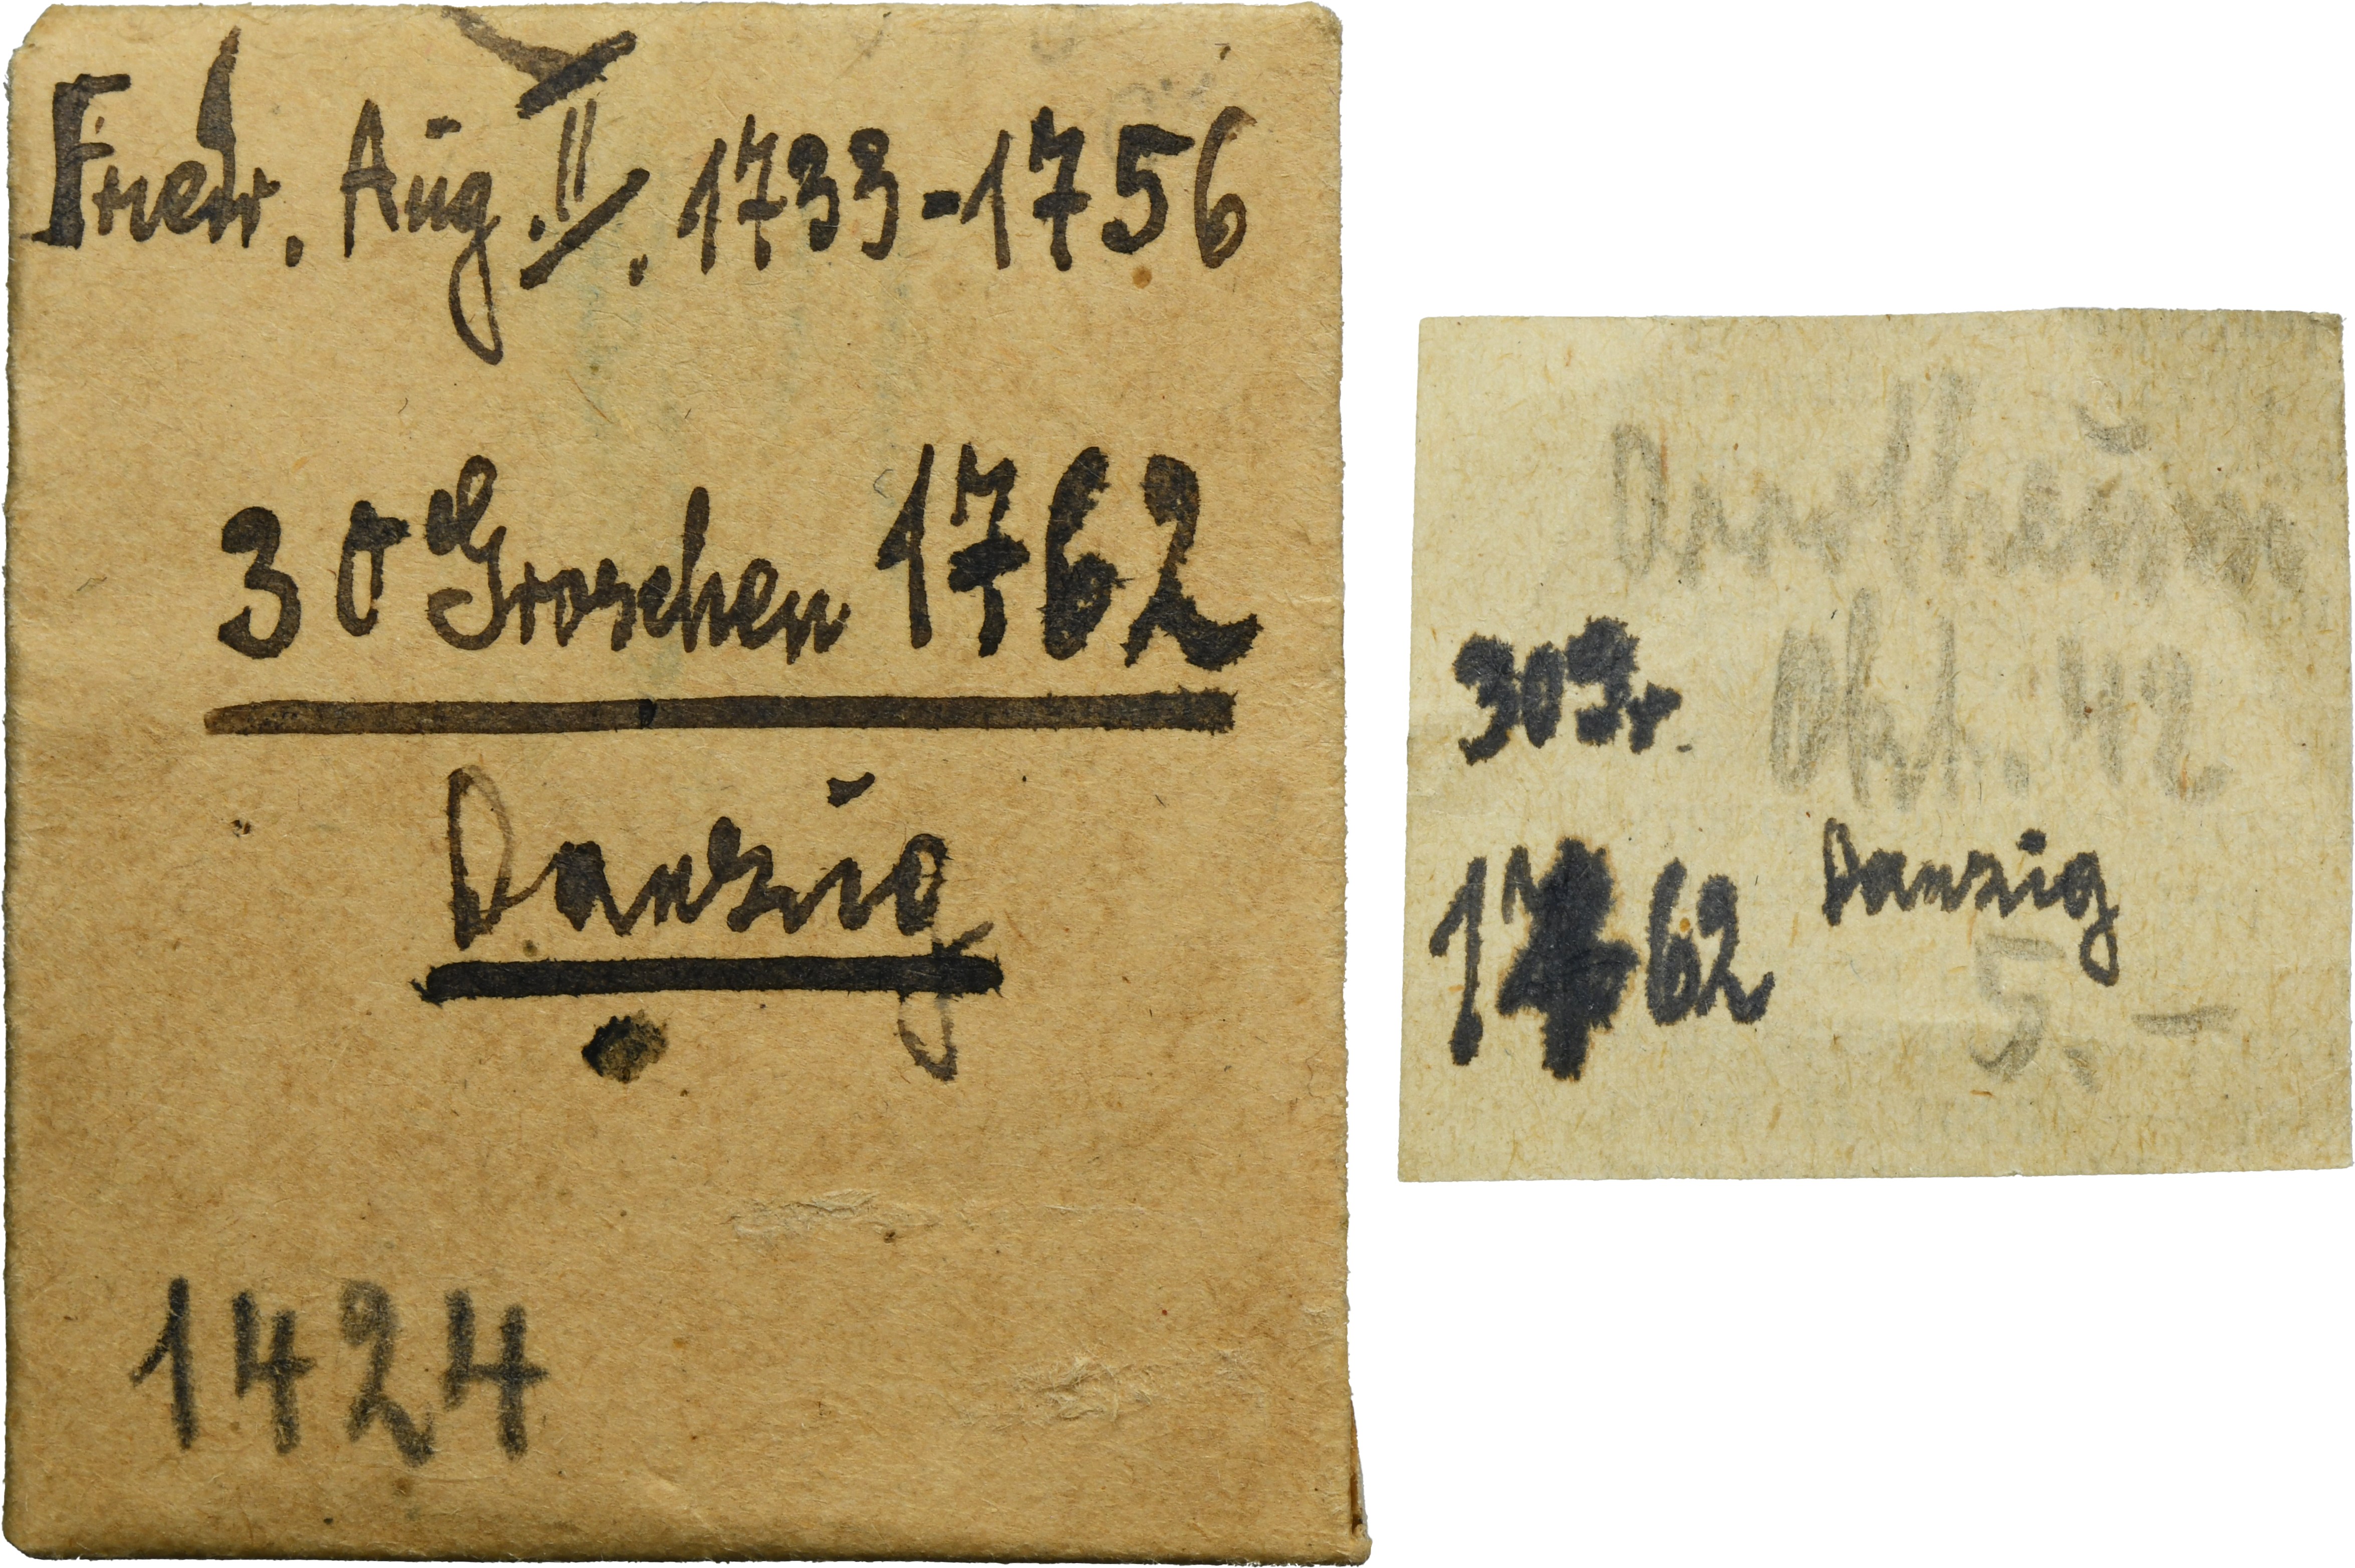 Friedr. Aug. II. 1733-1756
30 Groschen 1762
Danzig
1424
Dorotheum
30 Gr. Okt. 42
1762 Danzig
5.-